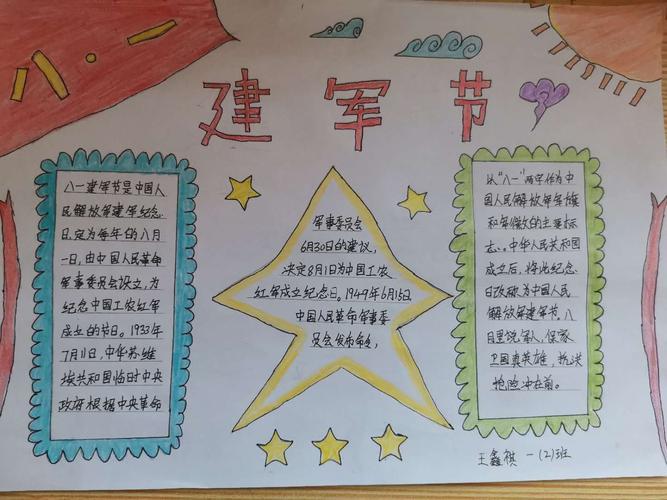 八·一
建军节
八一建军节是中国人
民解放军建军纪念
日,定为每年的八月
一日,由中国人民革命
军事委员会设立,为
纪念中国工农红军
成立的节日。1933年
7月11日,中华苏维
埃共和国临时中央
政府根据中央革命
军事委员会
6月30日的建议,
决定8月1日为中国工农
红军成立纪念日。1949年6月15日
中国人民革命军事委
员会发布命令,
以“八一”两字作为中
国人民解放军军旗
和军徽的主要标
志。中华人民共和国
成立后,将此纪念
日改称为中国人民
解放军建军节。八
月里说军人,保家
卫国真英雄,抗洪
抢险冲在前。
王鑫祺 一(2)班